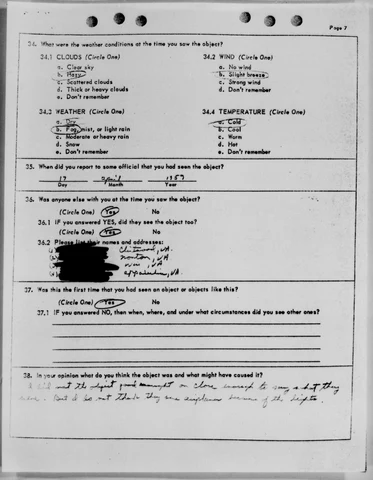 Page 7
34. What were the weather conditions at the time you saw the object?
34.1 CLOUDS (Circle One) 34.2 WIND (Circle One)
a. Clear sky a. No wind
b. Hazy b. Slight breeze
c. Scattered clouds c. Strong wind
d. Thick or heavy clouds d. Don't remember
e. Don't remember
34.3 WEATHER (Circle One) 34.4 TEMPERATURE (Circle One)
a. Dry a. Cold
b. Fog, mist, or light rain b. Cool
c. Moderate or heavy rain c. Warm
d. Snow d. Hot
e. Don't remember e. Don't remember
35. When did you report to some official that you had seen the object?
17 April 1957
Day Month Year
36. Was anyone else with you at the time you saw the object?
(Circle One) Yes No
36.1 IF you answered YES, did they see the object too?
(Circle One) Yes No
36.2 Please list their names and addresses:
VA.
Norton, VA
Wise, VA
Appalachia, VA
37. Was this the first time that you had seen an object or objects like this?
(Circle One) Yes No
37.1 IF you answered NO, then when, where, and under what circumstances did you see other ones?
38. In your opinion what do you think the object was and what might have caused it?
I did not the object good enought or close enough to say what they
were. But I do not think they are airplanes because of the